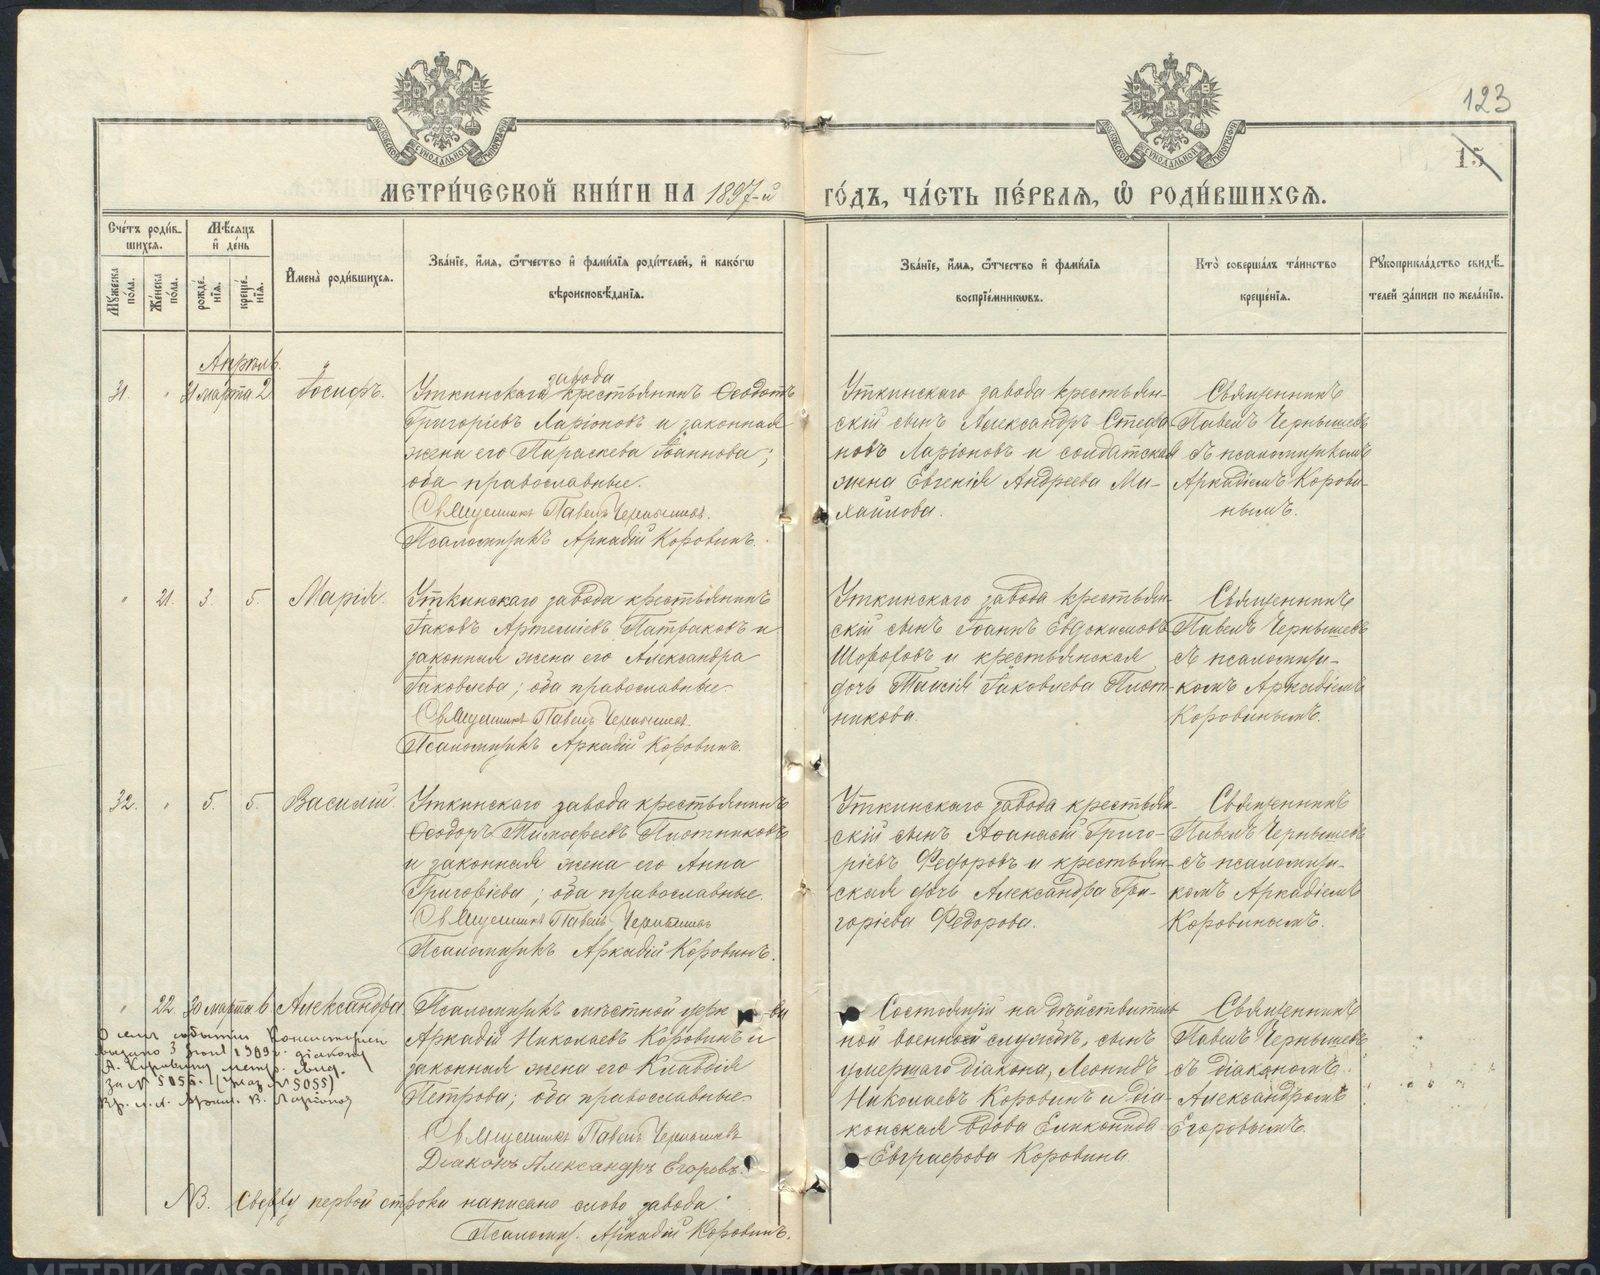 123
15
МЕТРИ́ЧЕСКОЙ КНИ́ГИ НА 1897-й ГО́ДЪ, ЧА́СТЬ ПЕ́РВАЯ, Ѽ РОДИ́ВШИХСЯ.
Сче́тъ роди́в-
шихся.
Мѣ́сяцъ
и҆ де́нь
Му́жеска
по́ла.
Же́нска
по́ла.
рожде́-
нїя.
креще́-
нїя.
И҆мена̀ роди́вшихся.
Зва́нїе, и҆́мя, ѻ҆́тчество и҆ фами́лїя роди́телей, и҆ како́гѡ
вѣроисповѣ́данїя.
Зва́нїе, и҆́мя, ѻ҆́тчество и҆ фами́лїя
воспрїе́мникѡвъ.
Кто̀ соверша́лъ та́инство
креще́нїя.
Рꙋкоприкла́дство свидѣ́-
телей за́писи по жела́нїю.
Апрѣль.
31. " 31 марта 2 Іосифъ.
завода
Уткинскаго крестьянинъ Ѳеодотъ
Григоріевъ Ларіоновъ и законная
жена его Параскева Іоаннова;
оба православные.
Священникъ Павелъ Чернышевъ.
Псаломщикъ Аркадій Коровинъ.
Уткинскаго завода крестьян-
скій сынъ Александръ Стефа
новъ Ларіоновъ и солдатская
жена Евгенія Андреева Ми-
хайлова.
Священникъ
Павелъ Чернышевъ
съ псаломщикомъ
Аркадіемъ Корови-
нымъ.
" 21. 3. 5. Марія.
Уткинскаго завода крестьянинъ
Іаковъ Артеміевъ Патраковъ и
законная жена его Александра
Іаковлева; оба православные.
Священникъ Павелъ Чернышевъ.
Псаломщикъ Аркадій Коровинъ.
Уткинскаго завода крестьян-
скій сынъ Іоаннъ Евдокимовъ
и крестьянская
дочь Таисія Іаковлева Плот-
никова.
Священникъ
Павелъ Чернышевъ
съ псаломщи-
комъ Аркадіемъ
Коровинымъ.
32. " 5. 5. Василій.
Уткинскаго завода крестьянинъ
Ѳеодоръ Тимофеевъ Плотниковъ
и законная жена его Анна
Григоріева; оба православные.
Священникъ Павелъ Чернышевъ
Псаломщикъ Аркадій Коровинъ.
Уткинскаго завода крестьян-
скій сынъ Аѳанасій Григо-
ріевъ Федоровъ и крестьян-
ская дочь Александра Гри-
горіева Федорова.
Священникъ
Павелъ Чернышевъ
съ псаломщи-
комъ Аркадіемъ
Коровинымъ.
" 22. 30 марта 6 Александра
Псаломщикъ мѣстной церк-ви
Аркадій Николаевъ Коровинъ и
законная жена его Клавдія
Петрова; оба православные.
Священникъ Павелъ Чернышевъ
Діаконъ Александръ Егоровъ.
Состоящій на дѣйствитель
ной военной службѣ, сынъ
умершаго діакона, Леонидъ
Николаевъ Коровинъ и діа-
конская вдова Еликонида
Евграфова Коровина
Священникъ
Павелъ Чернышевъ
съ діакономъ
Александромъ
Егоровымъ.
О семъ событіи Консисторіи
выдано 3 1909 г. діакону
А. Коровину метр. свид.
за № 5055. (указ. № 5055)
В. Ларіонов
NB. Сверху первой строки написано слово завода.
Псаломщ. Аркадій Коровинъ.